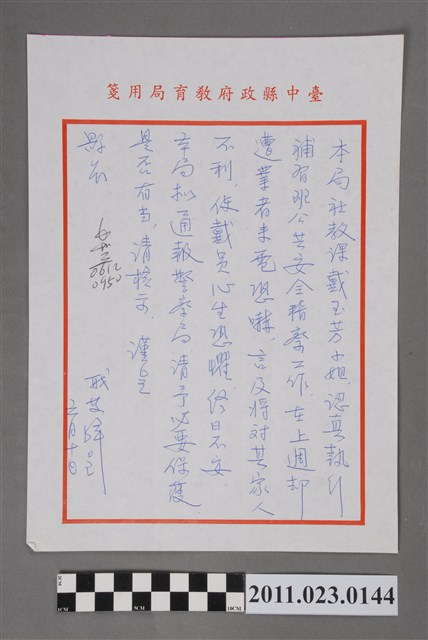 臺中縣政府教育局用箋
本局社教課戴玉芳小姐,認真執行
補習班公共安全稽察工作,在上週却
遭業者來電恐嚇,言及將對其家人
不利,使戴員心生恐懼,終日不安.
本局擬通報警察局請予必要保護.
是否有當,請核示. 謹呈
縣長
0612
0950
六月十日
2011.023.0144
1CM
5CM
10CM